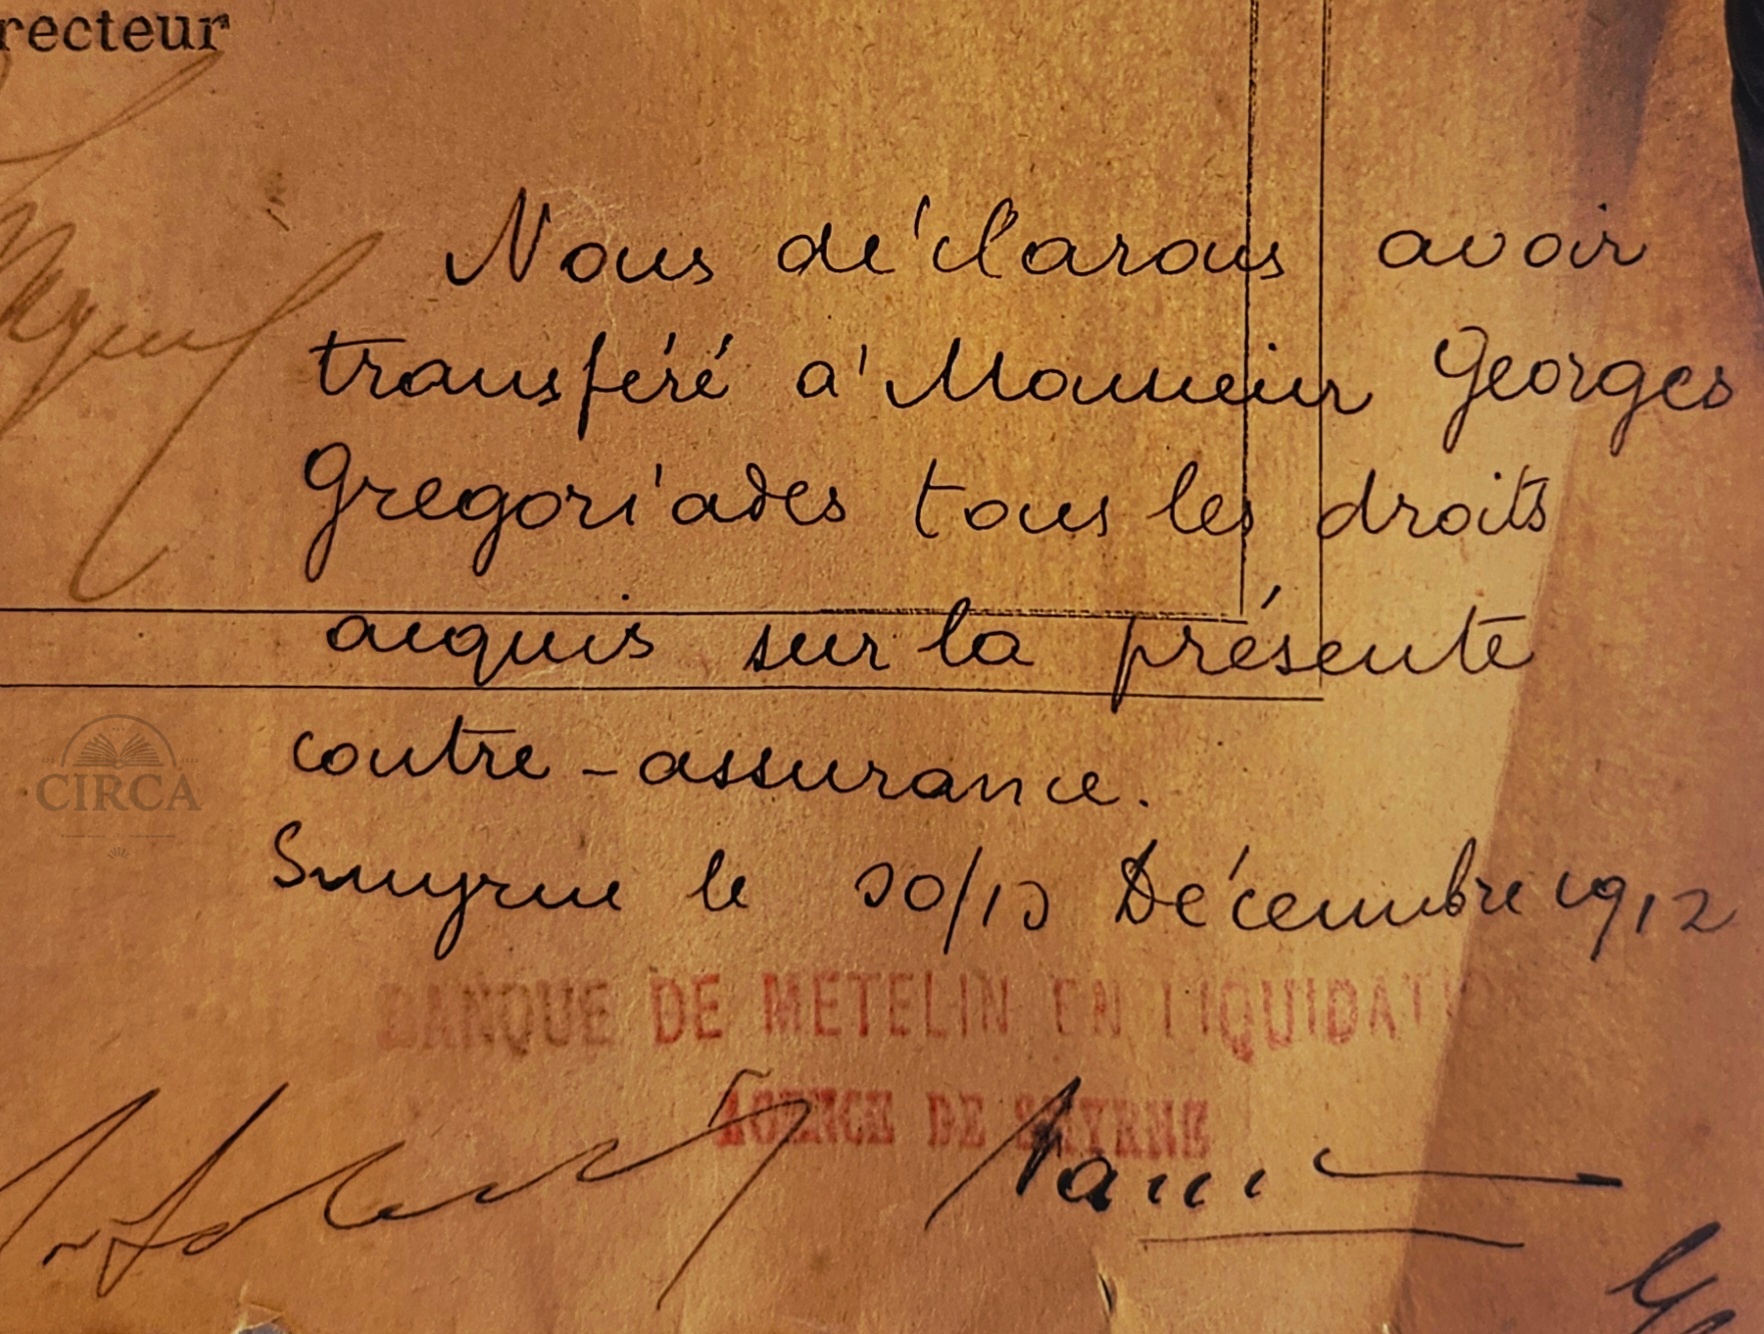 recteur
Nous déclarons avoir
transféré à Monsieur Georges
Gregoriades tous les droits
acquis sur la présente
contre-assurance.
Smyrne le 30/13 Décembre 1912
BANQUE DE METELIN EN LIQUIDATION
AGENCE DE SMYRNE
CIRCA